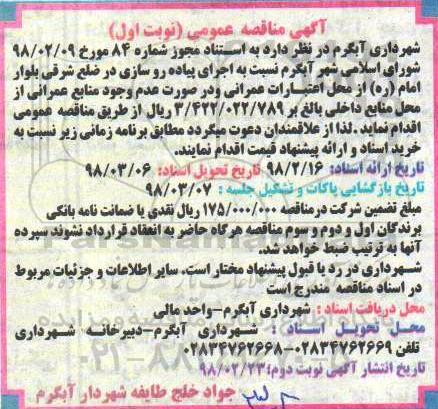 آگهی مناقصه عمومی (نوبت اول)
شهرداری آبگرم در نظر دارد به استناد مجوز شماره ۸۴ مورخ ۹۸/۰۲/۰۹
شورای اسلامی شهر آبگرم نسبت به اجرای پیاده رو سازی در ضلع شرقی بلوار
امام (ره) از محل اعتبارات عمرانی ودر صورت عدم وجود منابع عمرانی از
محل منابع داخلی بالغ بر ۳/۴۲۲/۰۲۲/۷۸۹ ریال از طریق مناقصه عمومی
اقدام نماید .لذا از علاقمندان دعوت میگردد مطابق برنامه زمانی زیر نسبت به
خرید اسناد و ارائه پیشنهاد قیمت اقدام نمایند.
تاریخ ارائه اسناد: ۹۸/۲/۱۶ تاریخ تحویل اسناد: ۹۸/۰۳/۰۶
تاریخ بازگشایی پاکات و تشکیل جلسه : ۹۸/۰۳/۰۷
مبلغ تضمین شرکت درمناقصه ۱۷۵/۰۰۰/۰۰۰ ریال نقدی یا ضمانت نامه بانکی
برندگان اول و دوم و سوم مناقصه هرگاه حاضر به انعقاد قرارداد نشوند سپرده
آنها به ترتیب ضبط خواهد شد.
شهرداری در رد یا قبول پیشنهاد مختار است. سایر اطلاعات و جزئیات مربوط
در اسناد مناقصه مندرج است
محل دریافت اسناد : شهرداری آبگرم-واحد مالی
محل تحویل اسناد : شهرداری آبگرم-دبیرخانه شهرداری
تلفن ۰۲۸۳۴۷۶۲۶۶۹-۰۲۸۳۴۷۶۲۶۶۸
تاریخ انتشار آگهی نوبت دوم: ۹۸/۰۲/۲۳
جواد خلج طایفه شهردار آبگرم